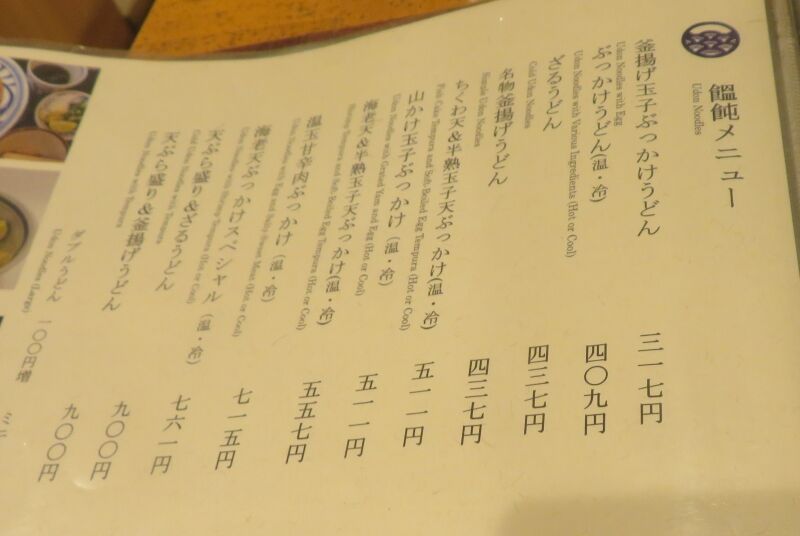 饂飩メニュー
Udon Noodles
釜揚げ玉子ぶっかけうどん 三一七円
Udon Noodles with Egg
ぶっかけうどん(温・冷) 四〇九円
Udon Noodles with Various Ingredients (Hot or Cool)
ざるうどん 四三七円
Cold Udon Noodles
名物釜揚げうどん 四三七円
Simple Udon Noodles
ちくわ天&半熟玉子天ぶっかけ(温・冷) 五一一円
Fish Cake Tempura and Soft Boiled Egg Tempura (Hot or Cool)
山かけ玉子ぶっかけ(温・冷) 五一一円
Udon Noodles with Grated Yam and Egg (Hot or Cool)
海老天&半熟玉子天ぶっかけ(温・冷) 五五七円
Shrimp Tempura and Soft Boiled Egg Tempura (Hot or Cool)
温玉甘辛肉ぶっかけ(温・冷) 七一五円
Udon Noodles with Egg and Salty-Sweet Meat (Hot or Cool)
海老天ぶっかけスペシャル(温・冷) 七六一円
Udon Noodles with Shrimp Tempura (Hot or Cool)
天ぷら盛り&ざるうどん 九〇〇円
Cold Udon Noodles with Tempura
天ぷら盛り&釜揚げうどん 九〇〇円
Udon Noodles with Tempura
ダブルうどん 一〇〇円増
Udon Noodles (Large)
ミニ